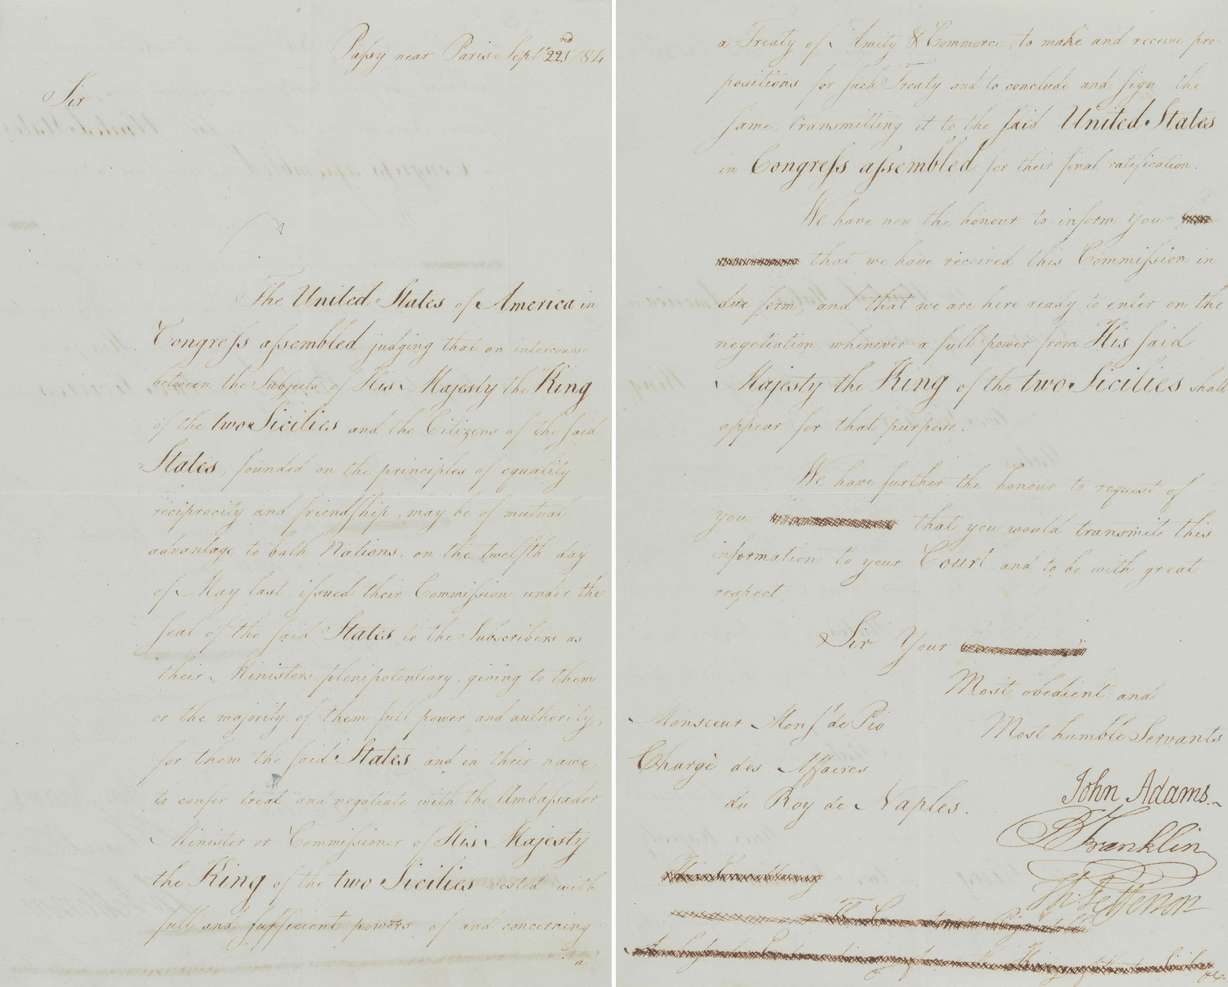 Passy near Paris Sept. 22nd 1784
Sir
The United States of America in
Congress assembled judging that an intercourse
between the Subjects of His Majesty the King
of the two Sicilies and the Citizens of the said
States, founded on the principles of equality
reciprocity and friendship, may be of mutual
advantage to both Nations, on the twelfth day
of May last issued their Commission under the
seal of the said States to the Subscribers as
their Ministers plenipotentiary, giving to them
or the majority of them full power and authority,
for them the said States and in their name
to confer treat and negotiate with the Ambassador
Minister or Commissioner of His Majesty
the King of the two Sicilies vested with
full and sufficient powers of and concerning
a
a Treaty of Amity & Commerce, to make and receive pro-
positions for such Treaty and to conclude and sign the
same transmitting it to the said United States
in Congress assembled for their final ratification.
We have now the honour to inform you
that we have received this Commission in
due form, and that we are here ready to enter on the
negotiation whenever a full power from His said
Majesty the King of the two Sicilies shall
appear for that purpose.
We have further the honour to request of
you that you would transmit this
information to your Court and to be with great
respect
Sir Your
Most obedient and
Most humble Servants
Monsieur Monsr. de Pio
Chargé des Affaires
du Roy de Naples.
John Adams.
B Franklin
Th: Jefferson